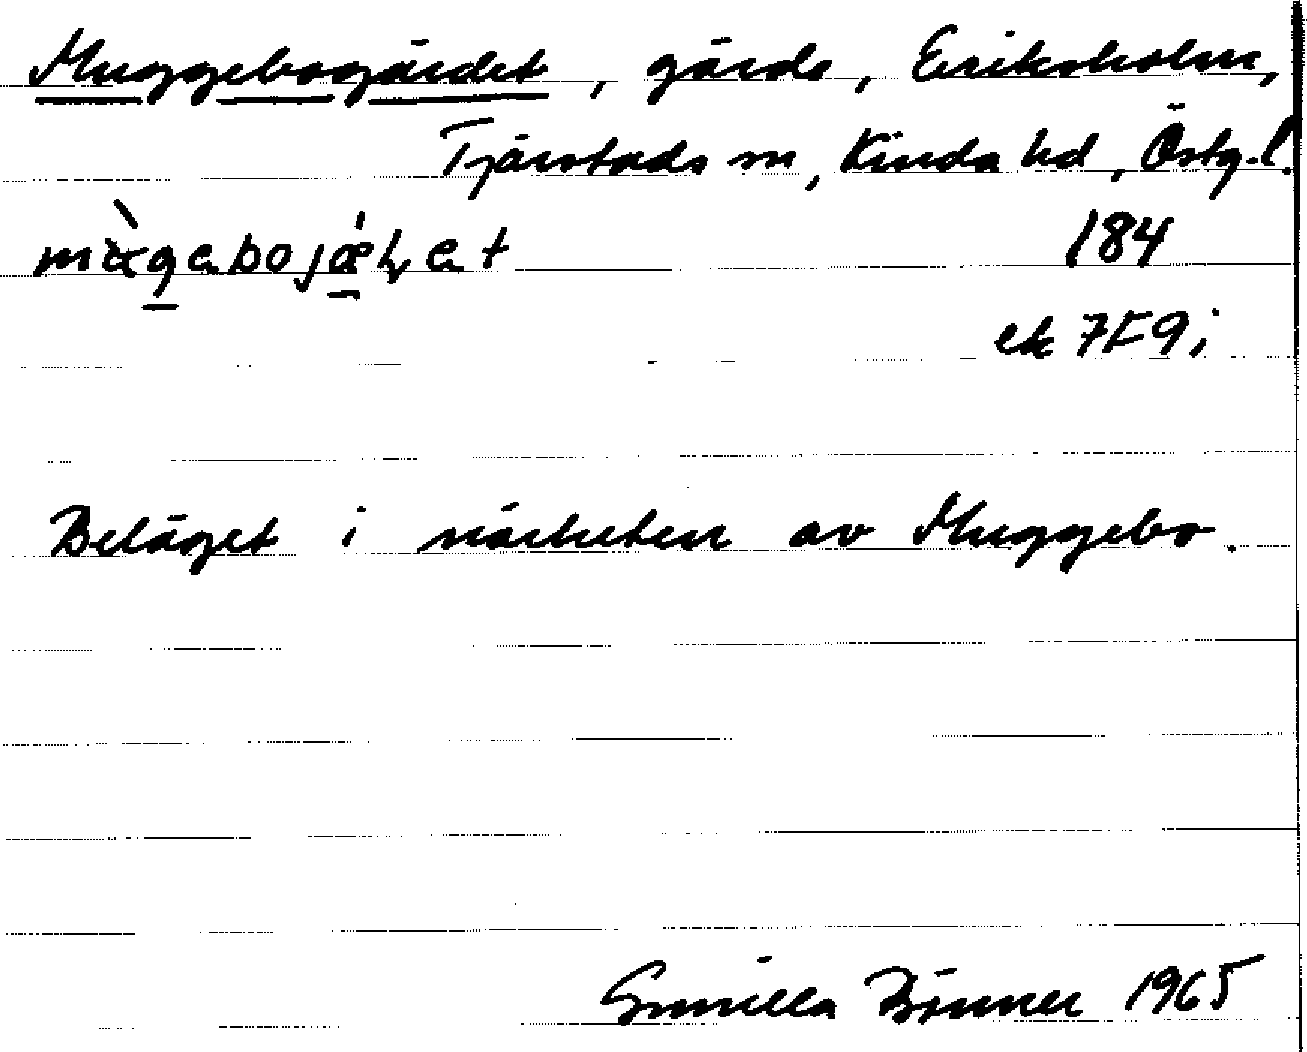 Muggebogärdet, gärde, Eriksholm,
Tjärstads sn, Kinda hd, Östg.l.
184
ek 7F9i
Beläget i närheten av Muggebo.
Gunilla Brinner 1965